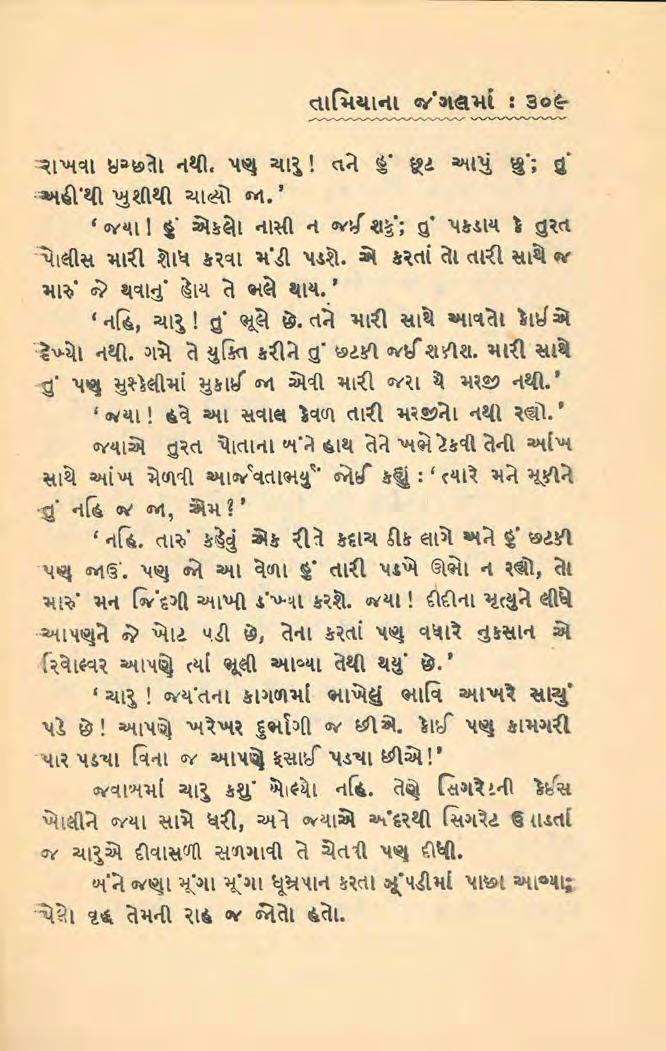 તામિયાના જંગલમાં : ૩૦૯
રાખવા ઇચ્છતો નથી. પણ ચારુ! તને હું છૂટ આપું છું; તું
અહીંથી ખુશીથી ચાલ્યો જા.’
‘જયા! હું એકલો નાસી ન જઈ શકું; તું પકડાય કે તુરત
પોલીસ મારી શોધ કરવા મંડી પડશે. એ કરતાં તો તારી સાથે જ
મારું જે થવાનું હોય તે ભલે થાય.’
‘નહિ, ચારુ! તું ભૂલે છે. તને મારી સાથે આવતો કોઈ એ
દેખ્યો નથી. ગમે તે યુક્તિ કરીને તું છટકી જઈ શકીશ. મારી સાથે
તું પણ મુશ્કેલીમાં મુકાઈ જા એવી મારી જરા યે મરજી નથી.’
‘જયા! હવે આ સવાલ કેવળ તારી મરજીનો નથી રહ્યો.’
જયાએ તુરત પોતાના બંને હાથ તેને ખભે ટેકવી તેની આંખ
સાથે આંખ મેળવી આર્જવતાભર્યું જોઈ કહ્યું : ‘ત્યારે મને મૂકીને
તું નહિ જ જા, એમ?’
‘નહિ. તારું કહેવું એક રીતે કદાચ ઠીક લાગે અને હું છટકી
પણ જાઉં. પણ જો આ વેળા હું તારી પડખે ઊભો ન રહ્યો, તો
મારું મન જિંદગી આખી ડંખ્યા કરશે. જયા! દીદીના મૃત્યુને લીધે
આપણને જે ખોટ પડી છે, તેના કરતાં પણ વધારે નુકસાન એ
રિવોલ્વર આપણે ત્યાં ભૂલી આવ્યા તેથી થયું છે.’
‘ચારુ! જયંતના કાગળમાં ભાખેલું ભાવિ આખરે સાચું
પડે છે! આપણે ખરેખર દુર્ભાગી જ છીએ. કોઈ પણ કામગરી
પાર પડયા વિના જ આપણે ફસાઈ પડયા છીએ!’
જવાબમાં ચારુ કશું બોલ્યો નહિ. તેણે સિગરેટની કેઈસ
ખોલીને જયા સામે ધરી, અને જયાએ અંદરથી સિગરેટ ઉપાડતાં
જ ચારુએ દીવાસળી સળગાવી તે ચેતવી પણ દીધી.
બંને જણા મૂંગા મૂંગા ધૂમ્રપાન કરતા ઝૂંપડીમાં પાછા આવ્યા;
પેલો વૃદ્ધ તેમની રાહ જ જોતો હતો.